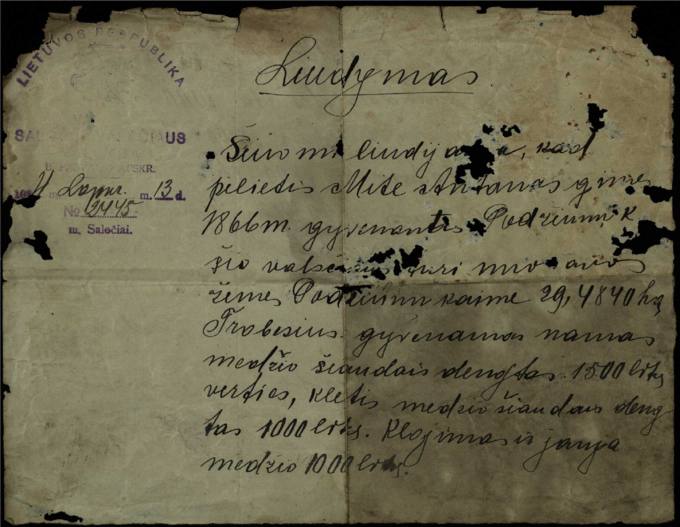 LIETUVOS RESPUBLIKA
Liudymas
m. 13 d.
No 2445
m. Saločiai.
Šiuo mi liudijama, kad
pilietis Mite Antanas gimęs
1866 m. gyvenantis
šio turi nuosavos
žemės kaime 29,4840 ha
Trobesius gyvenamas namas
medžio šiaudais dengtas 1500 litų
verties, kletis medžio šiaudais deng
tas 1000 litų. Klojimas ir jauja
medžio 1000 litų.